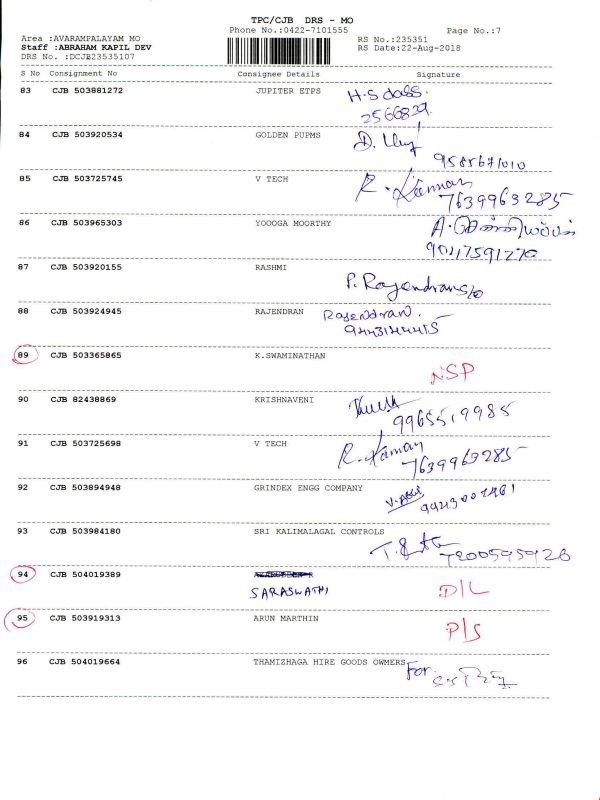 TPC/CJB DRS - MO
Phone No.:0422-7101555
Page No.:7
Area :AVARAMPALAYAM MO
RS No.:235351
Staff :ABRAHAM KAPIL DEV
RS Date:22-Aug-2018
DRS No. :DCJB23535107
S No Consignment No Consignee Details Signature
83 CJB 503881272 JUPITER ETPS H.S dass.
2566829
84 CJB 503920534 GOLDEN PUPMS D.
9585671010
85 CJB 503725745 V TECH R. Kannan
7639963285
86 CJB 503965303 YOOOGA MOORTHY A.
87 CJB 503920155 RASHMI P. Rajendran
88 CJB 503924945 RAJENDRAN Rajendran.
89 CJB 503365865 K.SWAMINATHAN
NSP
90 CJB 82438869 KRISHNAVENI
9965519985
91 CJB 503725698 V TECH R. Kannan
7639963285
92 CJB 503894948 GRINDEX ENGG COMPANY
93 CJB 503984180 SRI KALIMALAGAL CONTROLS
7200595926
94 CJB 504019389
SARASWATHI D/L
95 CJB 503919313 ARUN MARTHIN
P/S
96 CJB 504019664 THAMIZHAGA HIRE GOODS OWNERS For